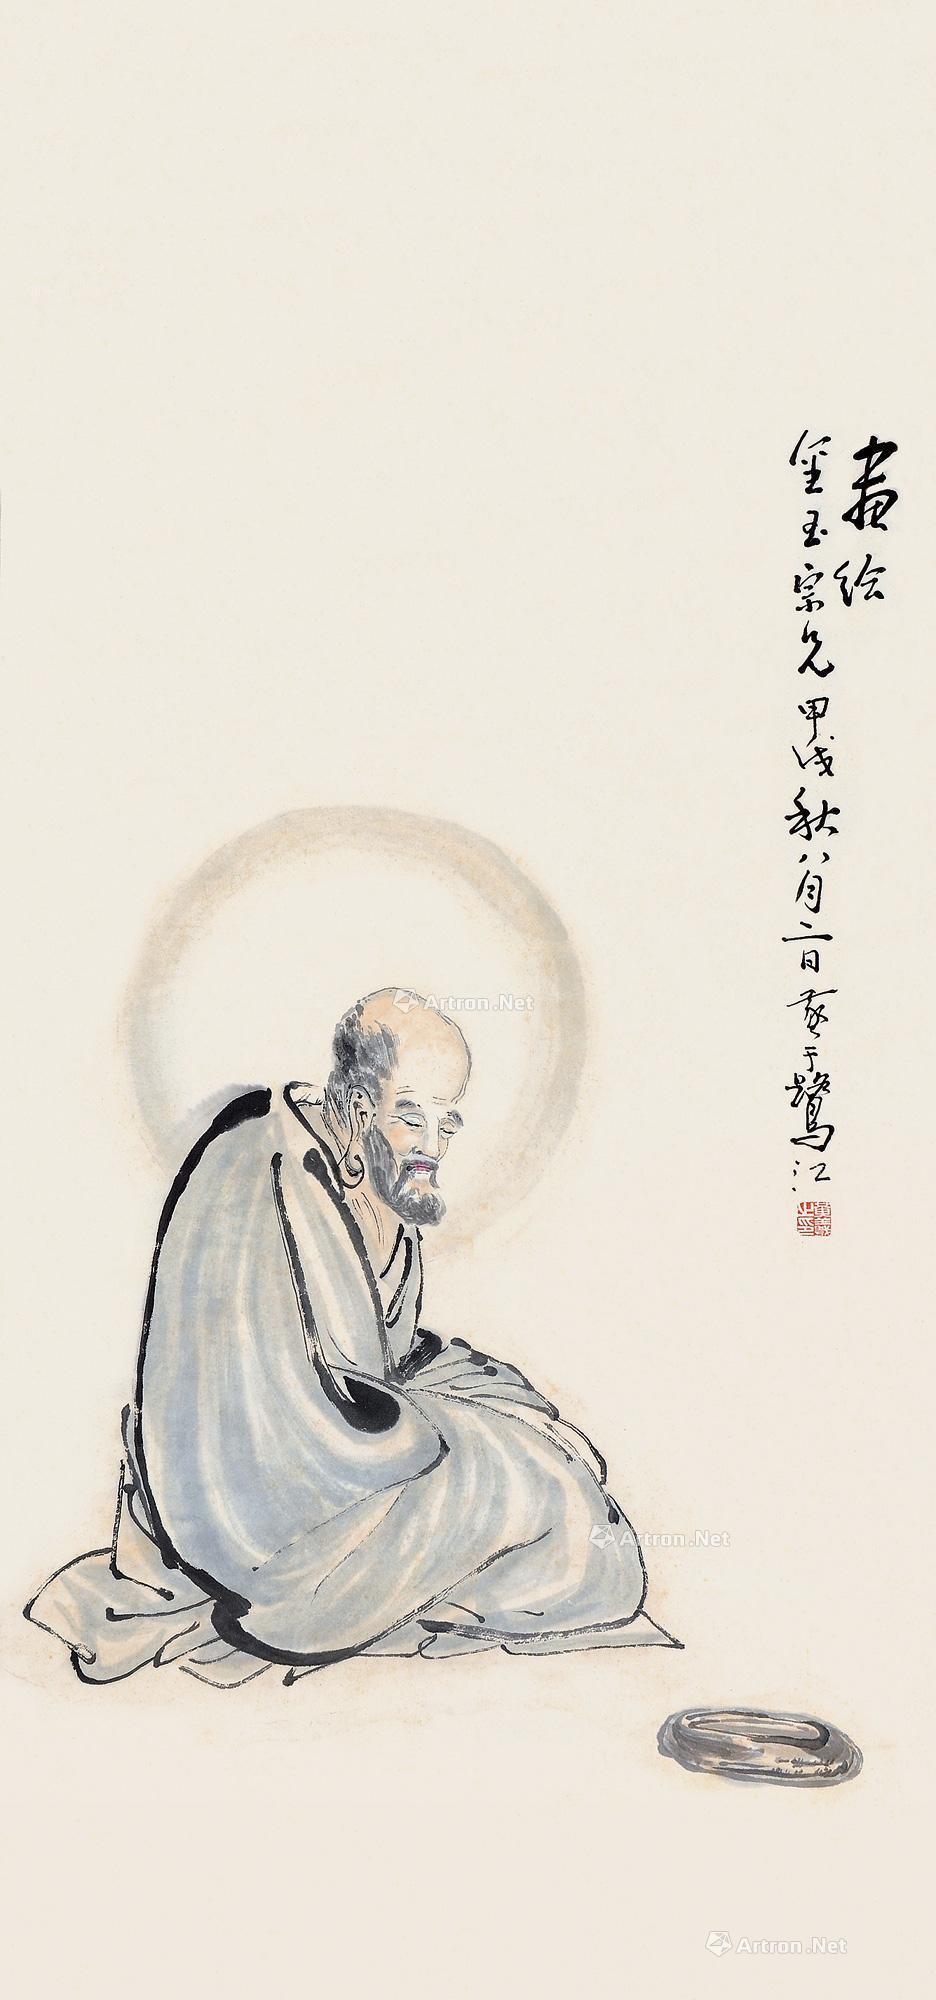 畫绘
金玉宗兄甲戌秋八月二日黄于鹭江
Artron.Net
Artron.Net
Artron.Net